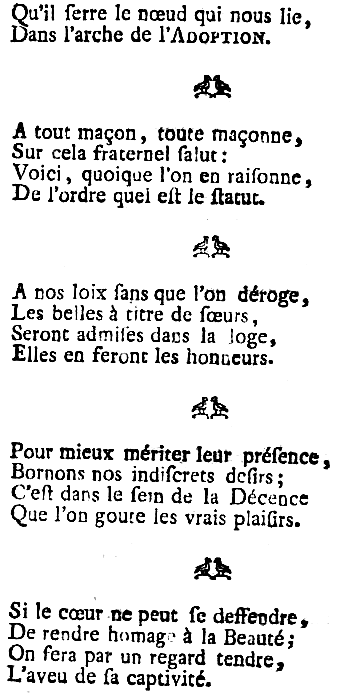 Qu'il ſerre le nœud qui nous lie,
Dans l'arche de l'ADOPTION.
A tout maçon, toute maçonne,
Sur cela fraternel ſalut :
Voici, quoique l'on en raiſonne,
De l'ordre quel eſt le ſtatut.
A nos loix ſans que l'on déroge,
Les belles à titre de ſœurs,
Seront admiſes dans la loge,
Elles en feront les honneurs.
Pour mieux mériter leur préſence,
Bornons nos indiſcrets deſirs ;
C'eſt dans le ſein de la Décence
Que l'on goute les vrais plaiſirs.
Si le cœur ne peut ſe deffendre,
De rendre homage à la Beauté ;
On fera par un regard tendre,
L'aveu de ſa captivité.